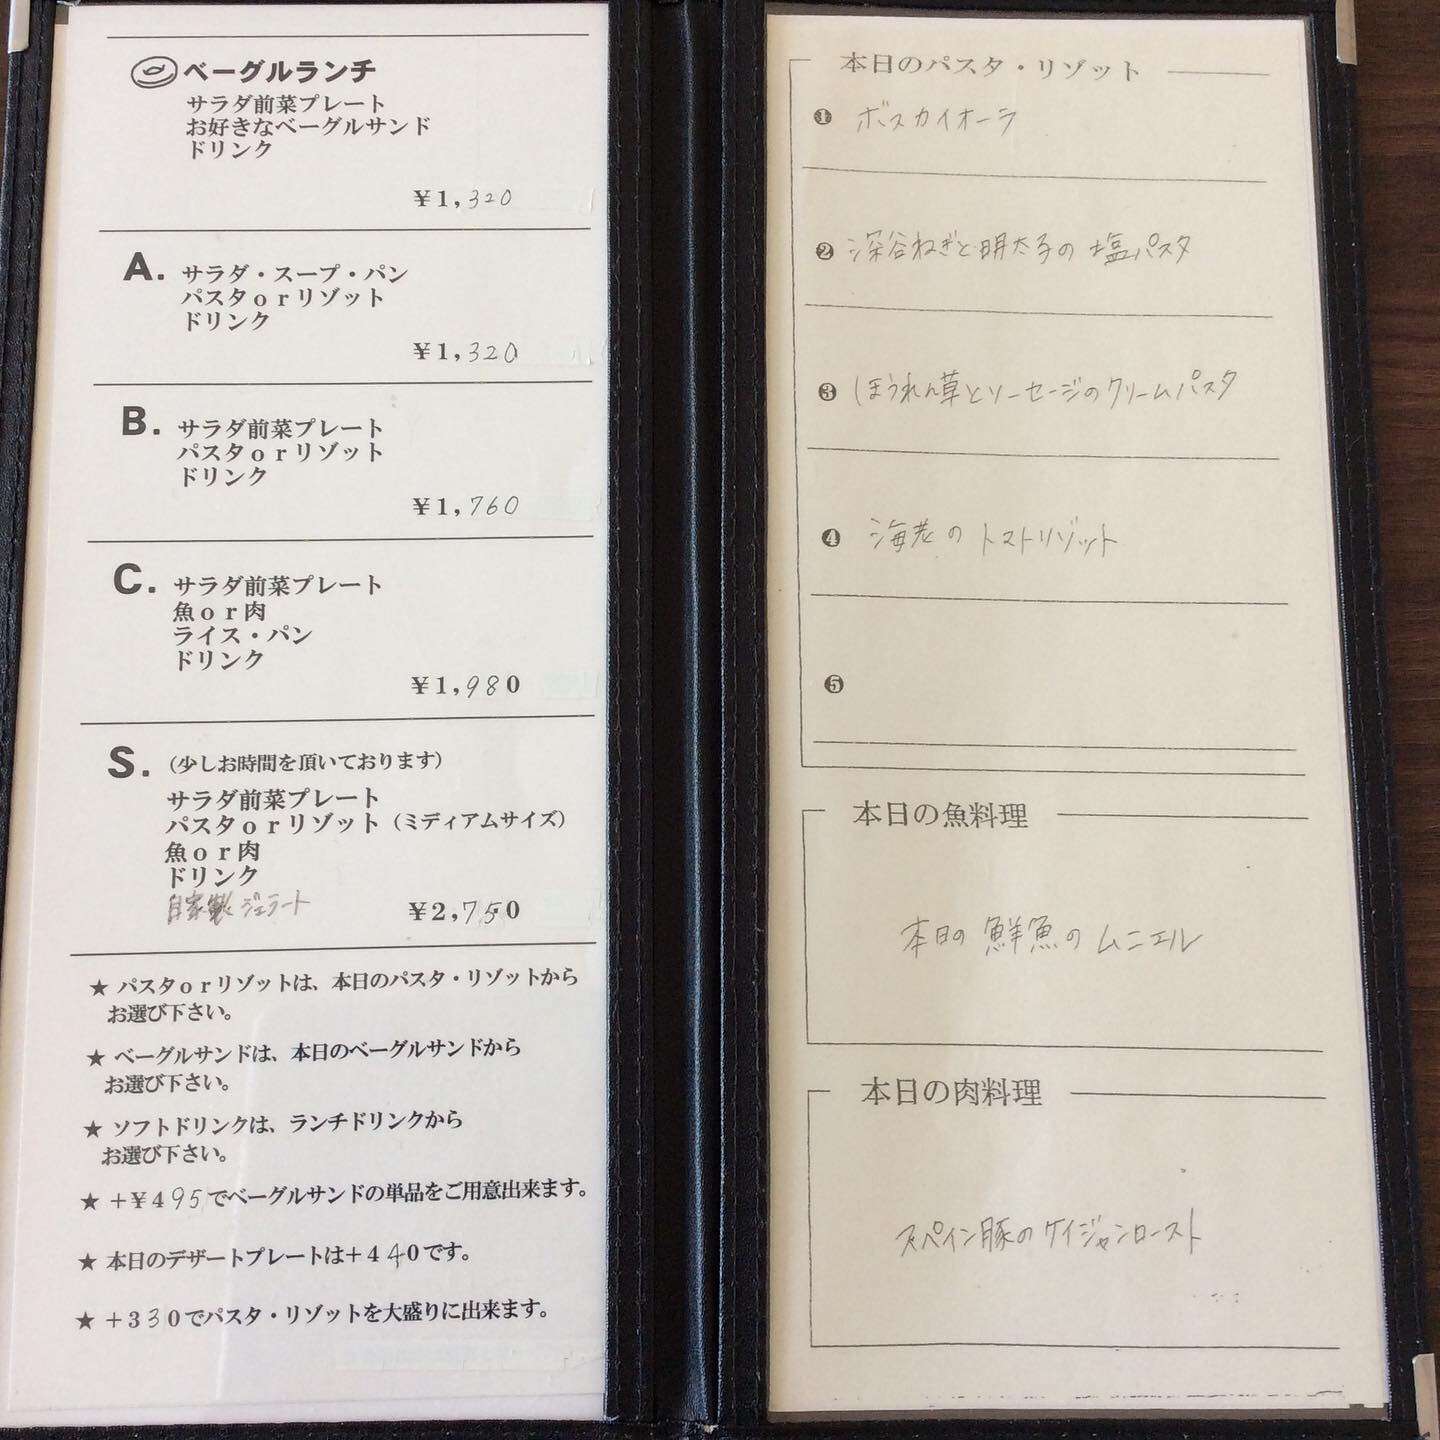 ベーグルランチ
サラダ前菜プレート
お好きなベーグルサンド
ドリンク
¥1,320
A. サラダ・スープ・パン
パスタorリゾット
ドリンク
¥1,320
B. サラダ前菜プレート
パスタorリゾット
ドリンク
¥1,760
C. サラダ前菜プレート
魚or肉
ライス・パン
ドリンク
¥1,980
S. (少しお時間を頂いております)
サラダ前菜プレート
パスタorリゾット(ミディアムサイズ)
魚or肉
ドリンク
自家製ジェラート ¥2,750
★ パスタorリゾットは、本日のパスタ・リゾットから
お選び下さい。
★ ベーグルサンドは、本日のベーグルサンドから
お選び下さい。
★ ソフトドリンクは、ランチドリンクから
お選び下さい。
★ +¥495でベーグルサンドの単品をご用意出来ます。
★ 本日のデザートプレートは+440です。
★ +330でパスタ・リゾットを大盛りに出来ます。
本日のパスタ・リゾット
❶ ボスカイオーラ
❷ 深谷ねぎと明太子の塩パスタ
❸ ほうれん草とソーセージのクリームパスタ
❹ 海老のトマトリゾット
❺
本日の魚料理
本日の鮮魚のムニエル
本日の肉料理
スペイン豚のケイジャンロースト